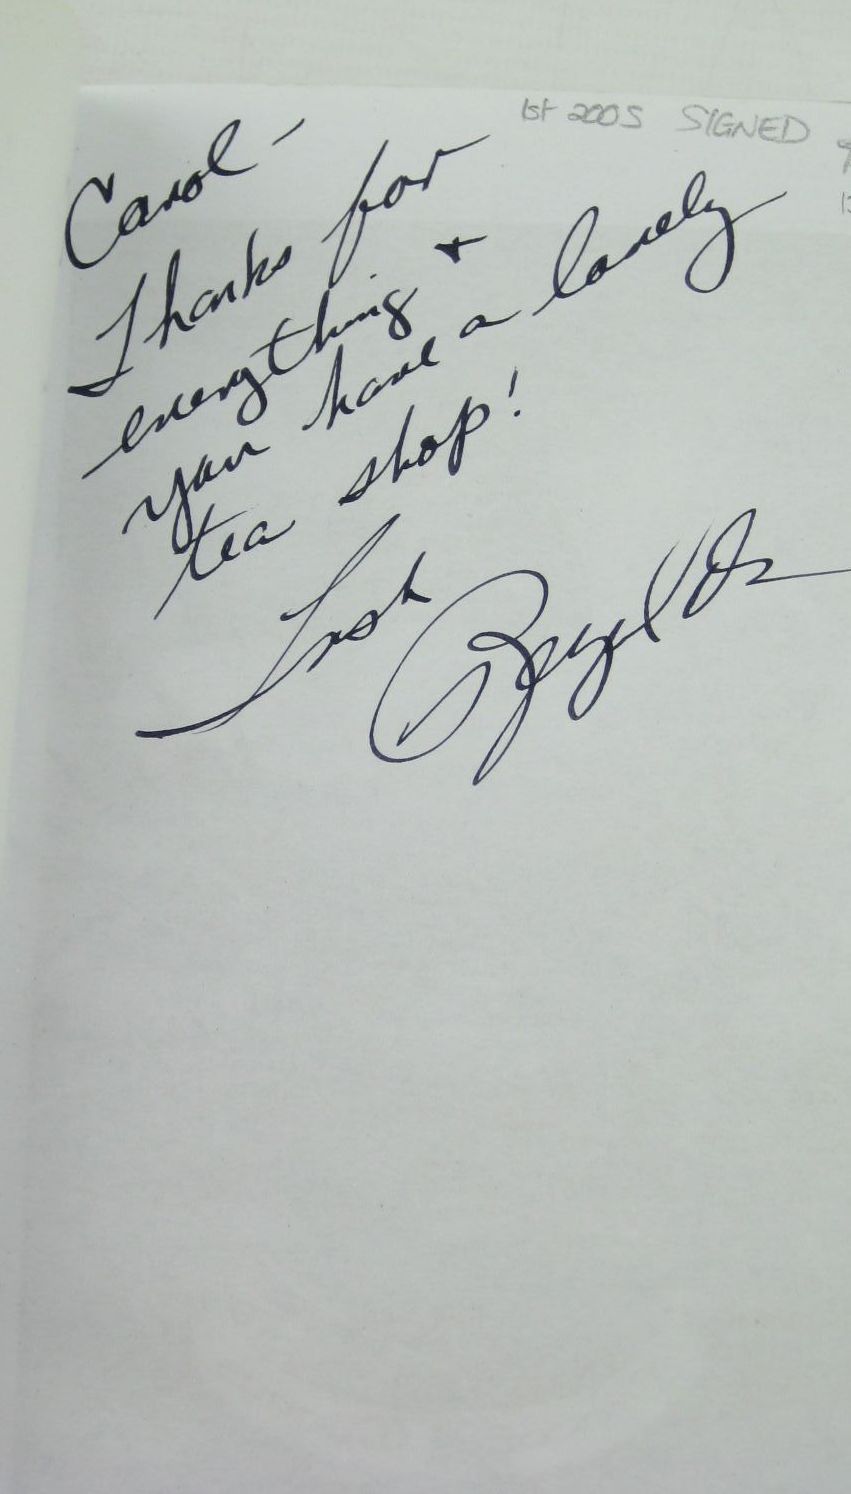 1st 2005 SIGNED
Carol -
Thanks for
everything +
you have a lovely
tea shop!
Trish